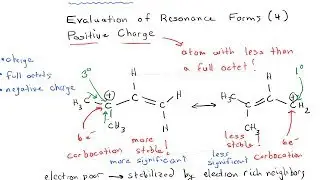 Evaluation of Resonance Forms (4)
Positive Charge
atom with less than
a full octet!
• charge
• full octets
• negative charge
3° 1°
H H H
H₃C C C C H ↔ H₃C C C CH₂
CH₃ H CH₃ H
6e⁻ more stable! less stable! 6e⁻
carbocation more significant less significant carbocation
electron poor → stabilized by electron rich neighbors